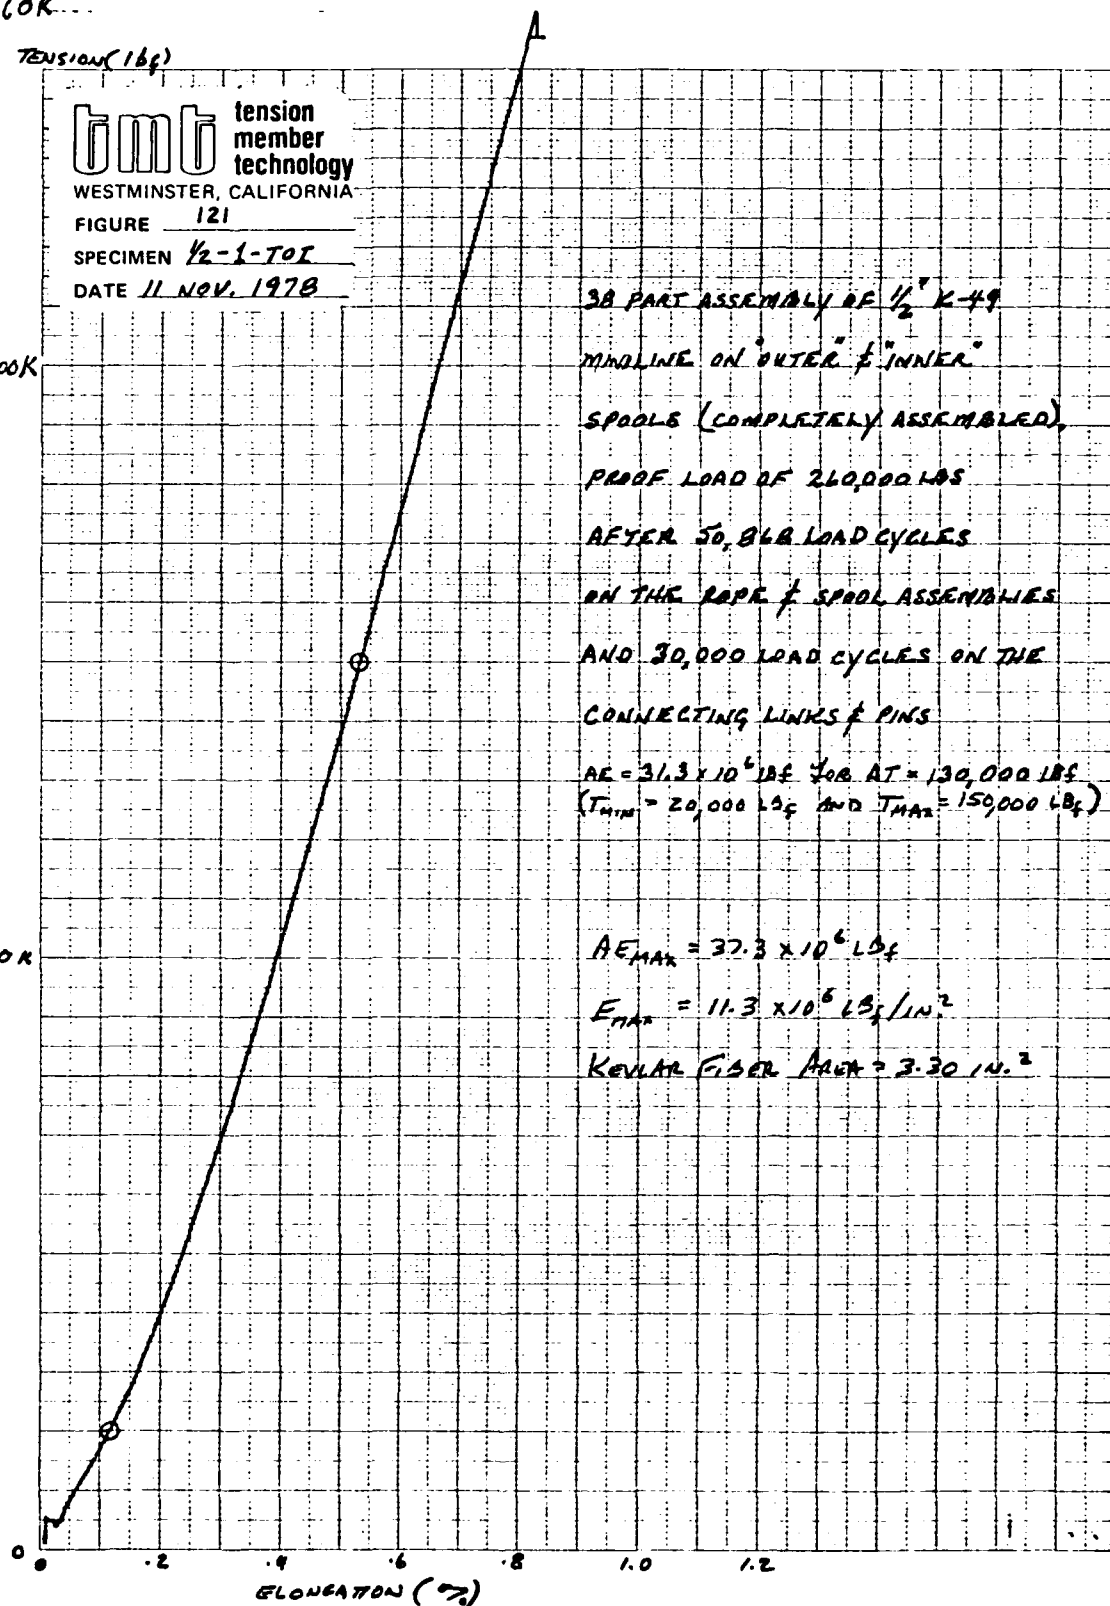 60K
TENSION (lbf)
tmt tension
member
technology
WESTMINSTER, CALIFORNIA
FIGURE 121
SPECIMEN 1/2-1-TOI
DATE 11 NOV. 1978
38 PART ASSEMBLY OF 1/2" K-49
MINILINE ON "OUTER" & "INNER"
00K
SPOOLS (COMPLETELY ASSEMBLED),
PROOF LOAD OF 260,000 LBS
AFTER 50,868 LOAD CYCLES
ON THE ROPE & SPOOL ASSEMBLIES
AND 30,000 LOAD CYCLES ON THE
CONNECTING LINKS & PINS
AE = 31.3 x 10^6 LBf FOR ΔT = 130,000 LBf
(TMIN = 20,000 LBf AND TMAX = 150,000 LBf)
0K
AEMAX = 37.3 x 10^6 LBf
EMAX = 11.3 x 10^6 LBf/IN.²
KEVLAR FIBER AREA = 3.30 IN.²
0
0 .2 .4 .6 .8 1.0 1.2
ELONGATION (%)